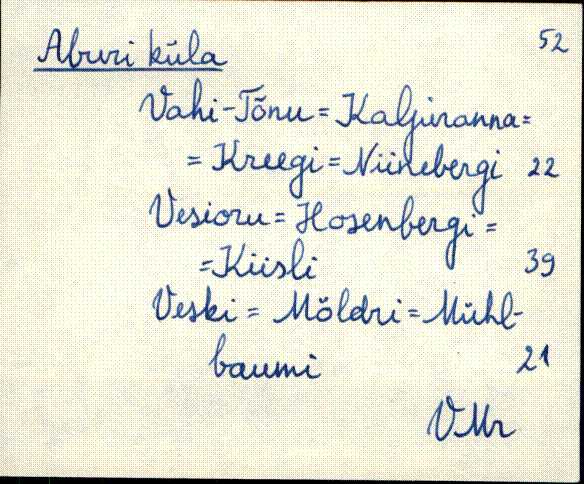 Aburi küla 52
Vahi-Tõnu = Kaljuranna =
= Kreegi = Niinebergi 22
Vesioru = Hosenbergi =
= Kiisli 39
Veski = Möldri = Mühl-
baumi 21
VMr